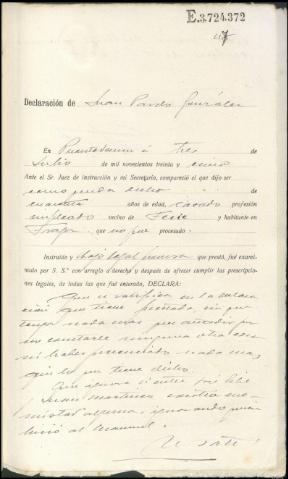 E.3.724.372
Declaración de Juan Pardo González
En Puentedeume á tres de
Julio de mil novecientos treinta y cinco
Ante el Sr. Juez de instrucción y mi Secretario, compareció el que dijo ser
como queda dicho de
cuarenta años de edad, casado profesión
empleado vecino de y habitante en
que no fue procesado.
Instruido y bajo legal que prestó, fué exami-
nado por S. S.ª con arreglo a derecho y después de ofrecer cumplir las prescripciones
legales, de todas las que fué enterado, DECLARA:
Que se ratifica en la declara
ción que tiene prestada sin que
tenga nada mas que añadir por
no constarle ninguna otra cosa
ni haber presenciado nada mas
que lo que tiene dicho.
Que ignora si entre José
Juan Martinez existia
mistad alguna, ignorando quien
al